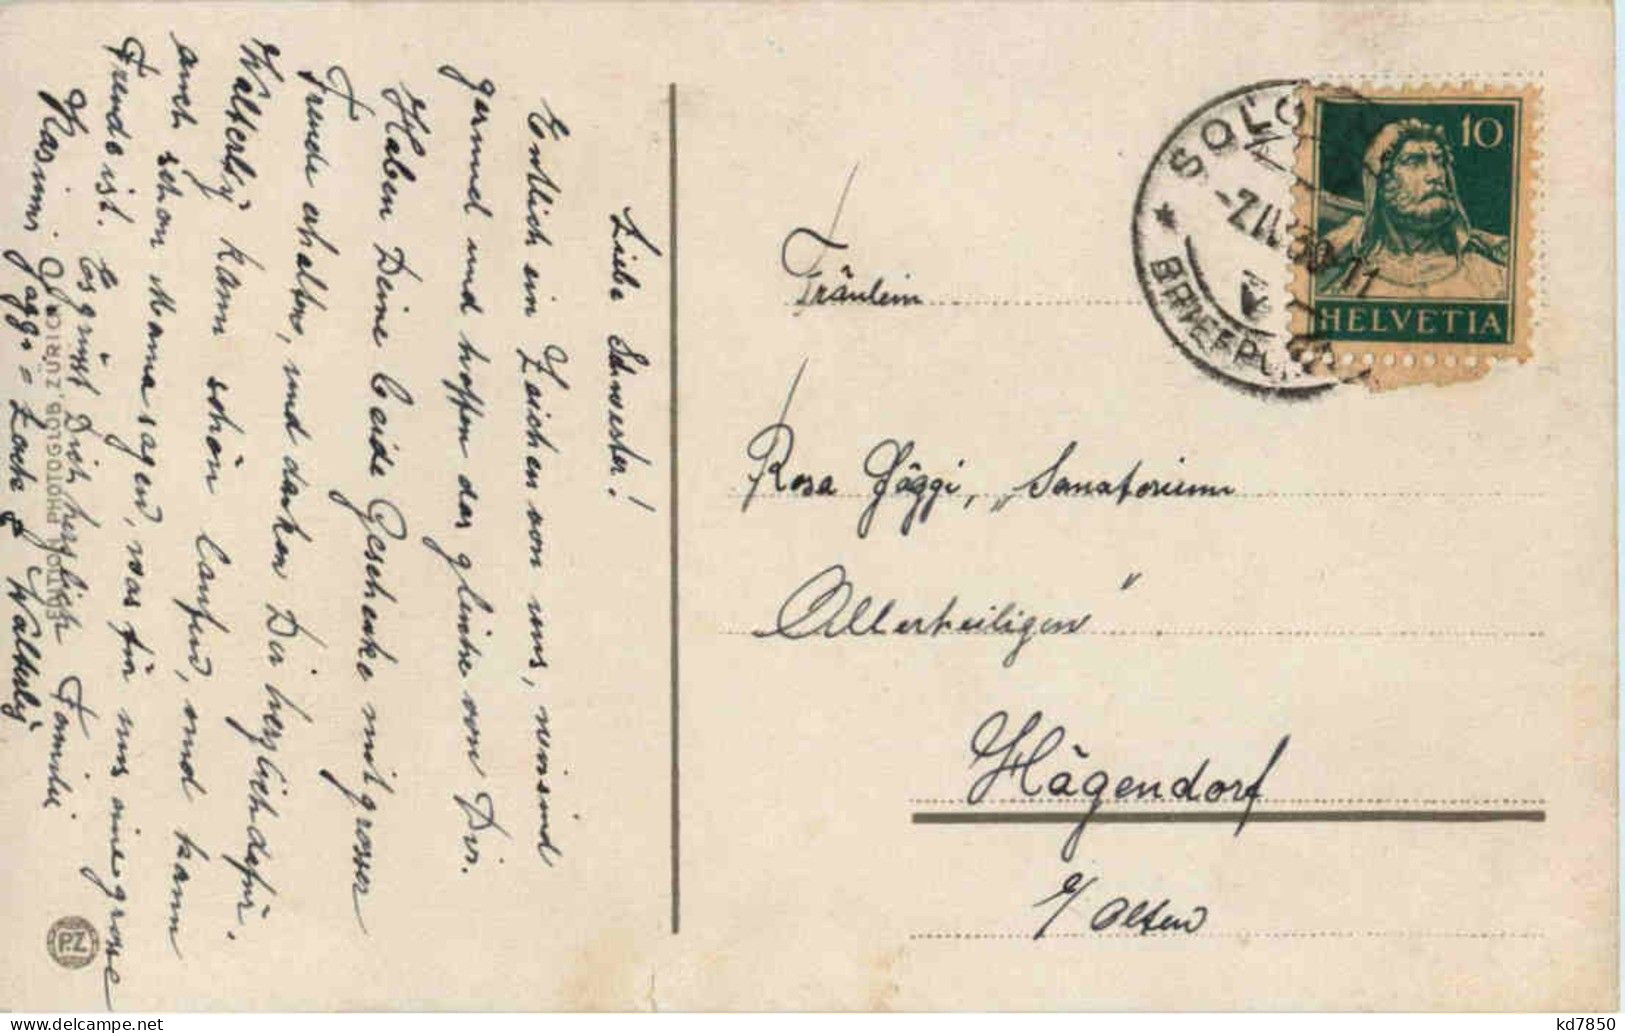 Liebe Schwester!
Entlich ein Zeichen von uns, wir sind
gesund und hoffen das gleiche von Dir.
Haben Deine beide Geschenke mit grosser
Freude erhalten, und danken Dir herzlich dafür.
Walterly kann schön laufen, und kann
auch schon Mama sagen, was für uns eine grosse
Freude ist. Es grüsst Dich herzlich Familie
Kasimir Jäggi = Zoch & Walterly
EDITION PHOTOGLOB, ZÜRICH
PZ
Fräulein
Rosa Jäggi, „Sanatorium
Allerheiligen"
Hägendorf
b/ Olten
SOLO
BRIEF
10
HELVETIA
kd7850